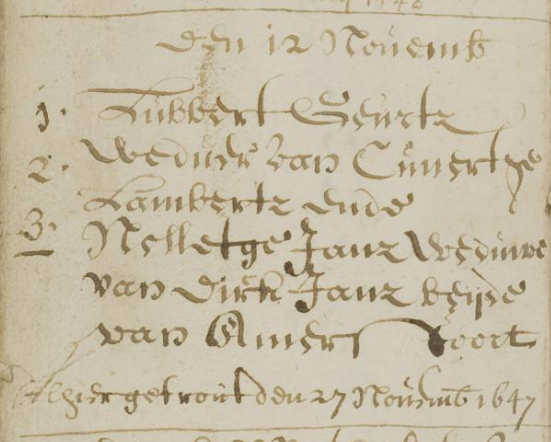 den 12 Novemb
1. Lubbert Geurtz
2. weduer van Cunertge
Lambertz ende
3. Nelletge Janz weduwe
van Dirck Janz beyde
van Amersfoort
Alhier getrout den 27 Novemb 1647